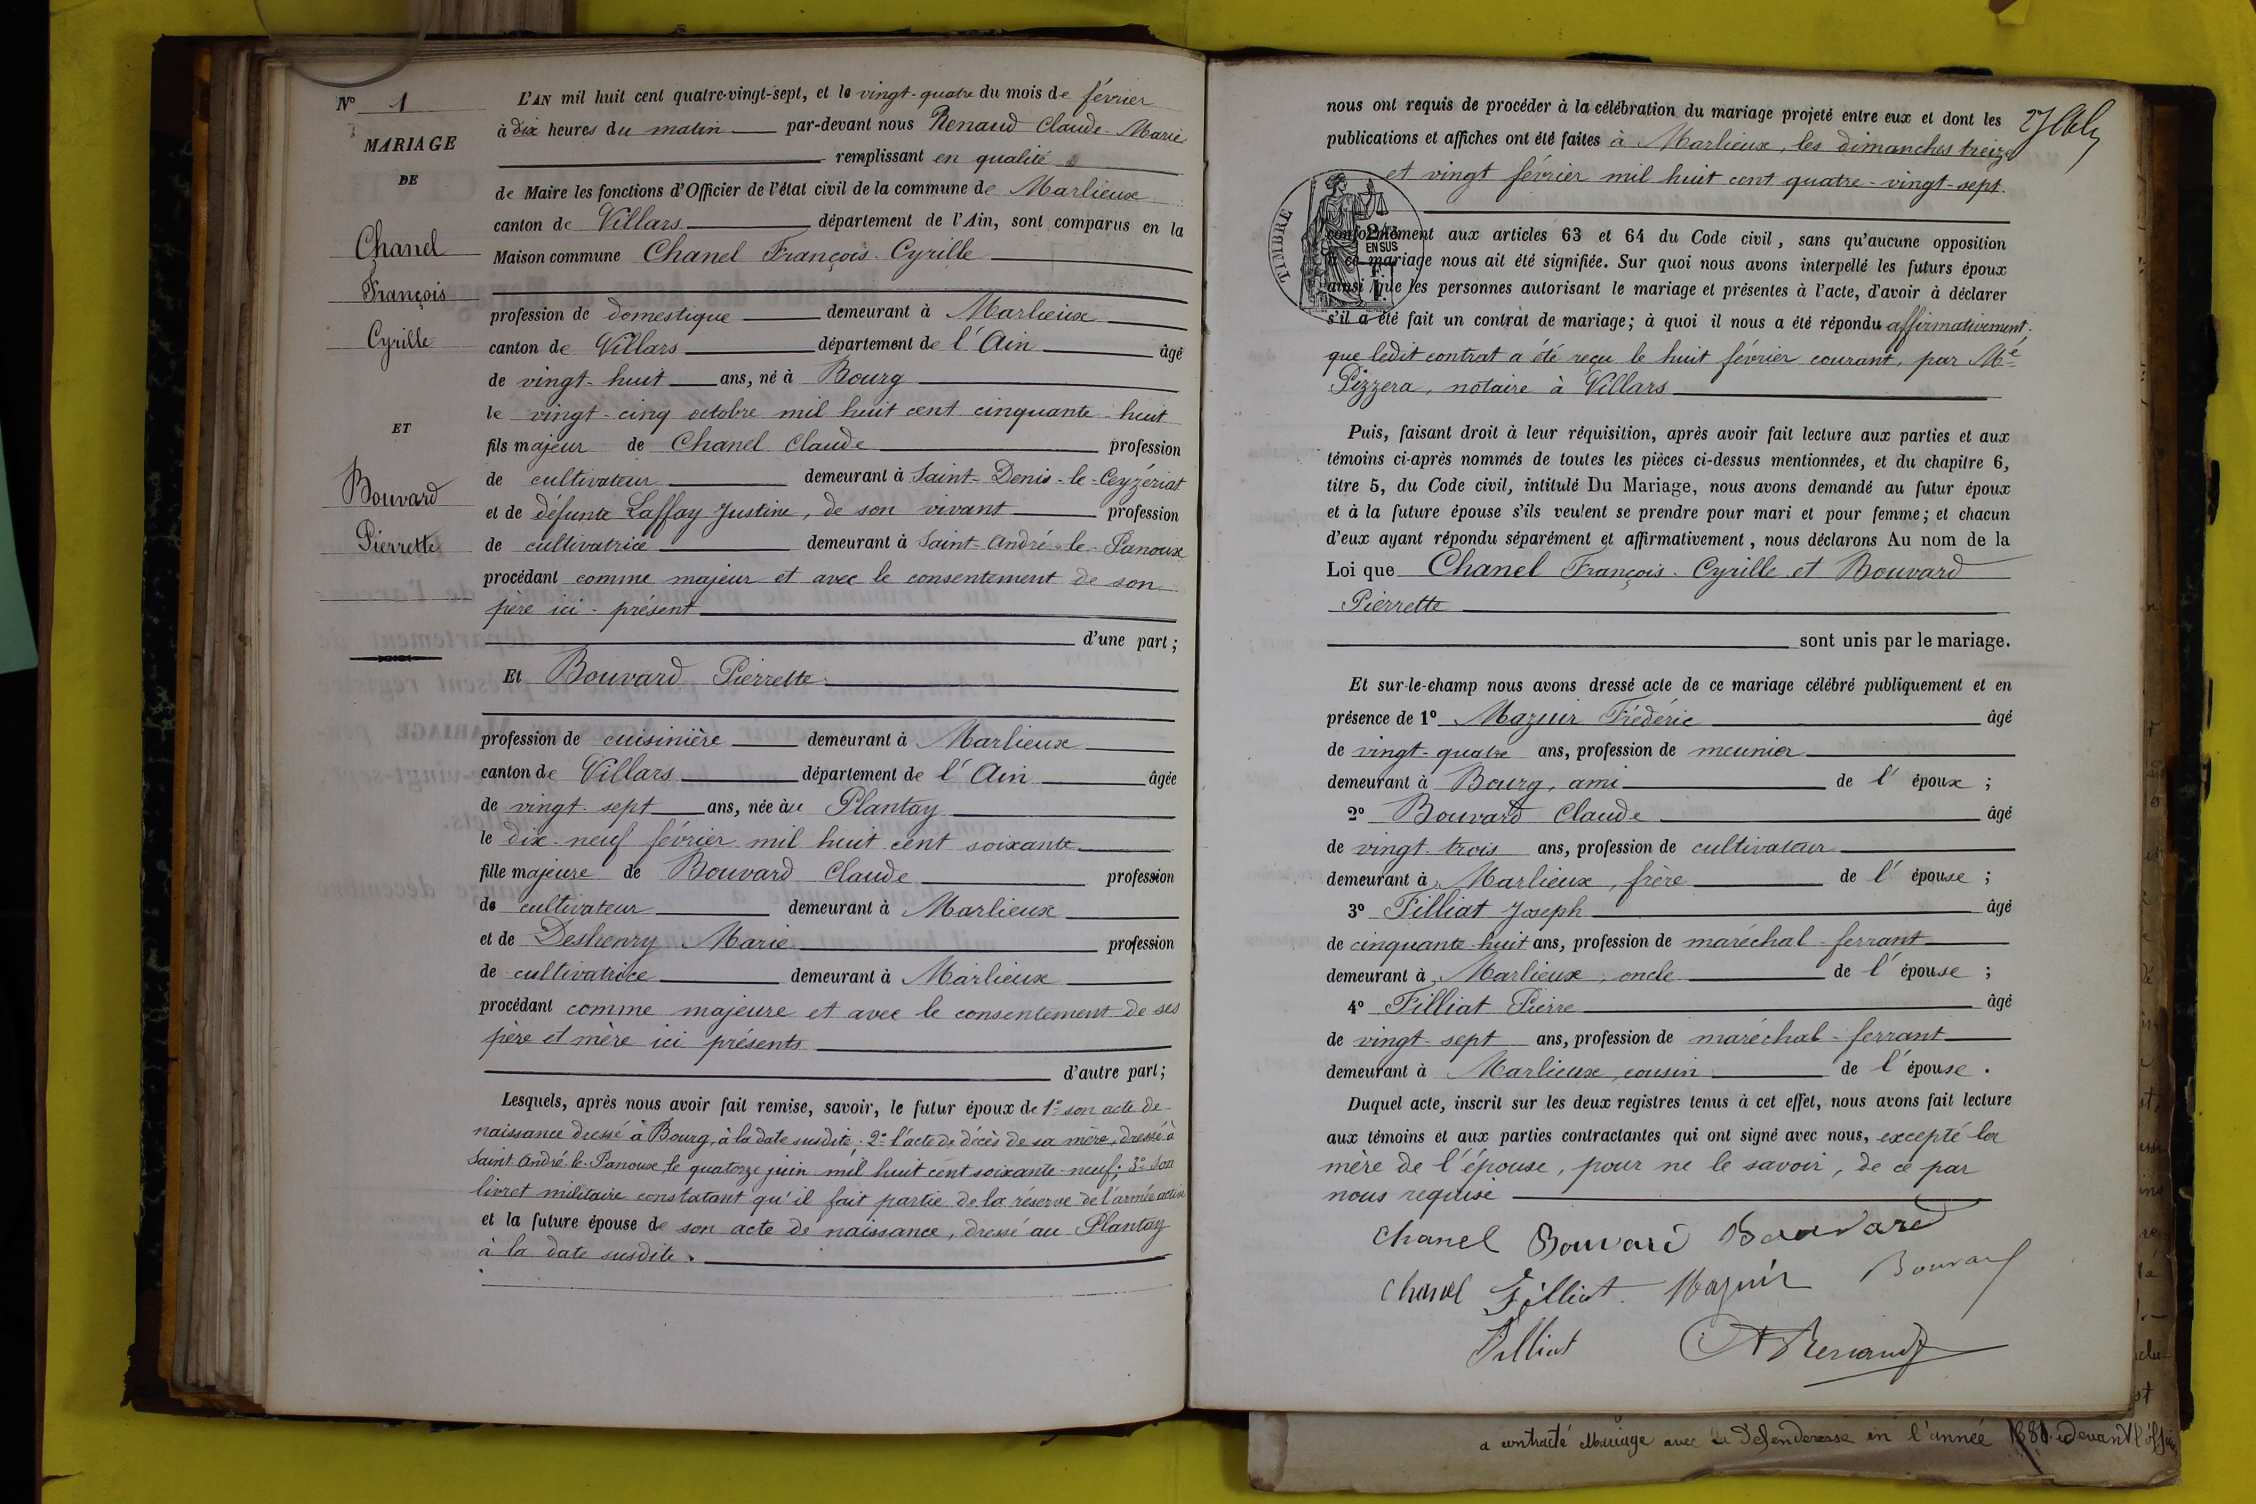 N° 1
MARIAGE
DE
Chanel
François
Cyrille
ET
Bouvard
Pierrette
L'AN mil huit cent quatre-vingt-sept, et le vingt-quatre du mois de février
à dix heures du matin par-devant nous Renaud Claude-Marie
remplissant en qualité
de Maire les fonctions d'Officier de l'état civil de la commune de Marlieux
canton de Villars département de l'Ain, sont comparus en la
Maison commune Chanel François-Cyrille
profession de domestique demeurant à Marlieux
canton de Villars département de l'Ain âgé
de vingt-huit ans, né à Bourg
le vingt-cinq octobre mil huit cent cinquante-huit
fils majeur de Chanel Claude profession
de cultivateur demeurant à Saint-Denis-le-Ceyzériat
et de défunte Laffay Justine, de son vivant profession
de cultivatrice demeurant à Saint-André-le-Panoux
procédant comme majeur et avec le consentement de son
père ici-présent
d'une part;
Et Bouvard Pierrette
profession de cuisinière demeurant à Marlieux
canton de Villars département de l'Ain âgée
de vingt-sept ans, née au Plantay
le dix-neuf février mil huit cent soixante
fille majeure de Bouvard Claude profession
de cultivateur demeurant à Marlieux
et de Deshenry Marie profession
de cultivatrice demeurant à Marlieux
procédant comme majeure et avec le consentement de ses
père et mère ici présents
d'autre part;
Lesquels, après nous avoir fait remise, savoir, le futur époux de 1° son acte de
naissance dressé à Bourg, à la date susdite; 2° l'acte de décès de sa mère, dressé à
Saint-André-le-Panoux, le quatorze juin mil huit cent soixante-neuf; 3° Son
livret militaire constatant qu'il fait partie de la réserve de l'armée active
et la future épouse de son acte de naissance, dressé au Plantay
à la date susdite.
nous ont requis de procéder à la célébration du mariage projeté entre eux et dont les
publications et affiches ont été faites à Marlieux, les dimanches treize
et vingt février mil huit cent quatre-vingt-sept.
TIMBRE
2/10es
EN SUS
conformément aux articles 63 et 64 du Code civil, sans qu'aucune opposition
à ce mariage nous ait été signifiée. Sur quoi nous avons interpellé les futurs époux
ainsi que les personnes autorisant le mariage et présentes à l'acte, d'avoir à déclarer
s'il a été fait un contrat de mariage; à quoi il nous a été répondu affirmativement.
que ledit contrat a été reçu le huit février courant, par Me
Pizzera, notaire à Villars
Puis, faisant droit à leur réquisition, après avoir fait lecture aux parties et aux
témoins ci-après nommés de toutes les pièces ci-dessus mentionnées, et du chapitre 6,
titre 5, du Code civil, intitulé Du Mariage, nous avons demandé au futur époux
et à la future épouse s'ils veulent se prendre pour mari et pour femme; et chacun
d'eux ayant répondu séparément et affirmativement, nous déclarons Au nom de la
Loi que Chanel François-Cyrille et Bouvard
Pierrette
sont unis par le mariage.
Et sur-le-champ nous avons dressé acte de ce mariage célébré publiquement et en
présence de 1° Mazuir Frédéric âgé
de vingt-quatre ans, profession de meunier
demeurant à Bourg, ami de l'époux;
2° Bouvard Claude âgé
de vingt-trois ans, profession de cultivateur
demeurant à Marlieux, frère de l'épouse;
3° Filliat Joseph âgé
de cinquante-huit ans, profession de maréchal-ferrant
demeurant à Marlieux, oncle de l'épouse;
4° Filliat Pierre âgé
de vingt-sept ans, profession de maréchal-ferrant
demeurant à Marlieux, cousin de l'épouse.
Duquel acte, inscrit sur les deux registres tenus à cet effet, nous avons fait lecture
aux témoins et aux parties contractantes qui ont signé avec nous, excepté la
mère de l'épouse, pour ne le savoir, de ce par
nous requise
Chanel Bouvard Bouvard
Chanel Filliat Mazuir Bouvard
Filliat Renaud
a contracté Mariage avec la Defenderesse en l'année 1881 devant l'offici